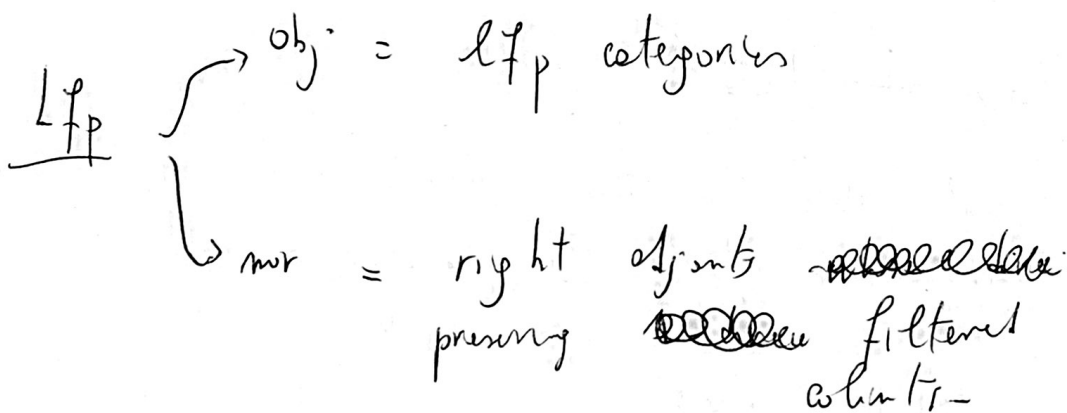 Lfp
obj = lfp categories
mor = right adjoints
preserving filtered
colimits